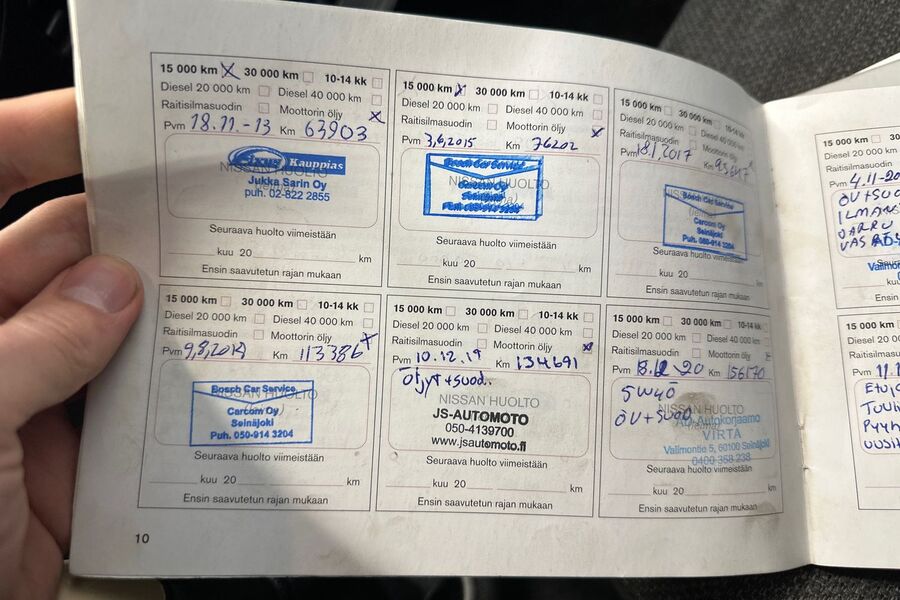 15 000 km X 30 000 km 10-14 kk
Diesel 20 000 km Diesel 40 000 km
Raitisilmasuodin Moottorin öljy X
Pvm 18.11.-13 Km 63903
Kauppias
NISSAN HUOLTO
Jukka Sarin Oy
puh. 02-822 2855
Seuraava huolto viimeistään
kuu 20 km
Ensin saavutetun rajan mukaan
15 000 km X 30 000 km 10-14 kk
Diesel 20 000 km Diesel 40 000 km
Raitisilmasuodin Moottorin öljy X
Pvm 3,6,2015 Km 76202
Bosch Car Service
NISSAN HUOLTO
Carcom Oy
Seinäjoki
Puh. 050-914 3204
Seuraava huolto viimeistään
kuu 20 km
Ensin saavutetun rajan mukaan
15 000 km 30 000 km 10-14 kk
Diesel 20 000 km Diesel 40 000 km
Raitisilmasuodin Moottorin öljy
Pvm 18.1.2017 Km
Bosch Car Service
NISSAN HUOLTO
Carcom Oy
Seinäjoki
Puh. 050-914 3204
Seuraava huolto viimeistään
kuu 20 km
Ensin saavutetun rajan mukaan
15 000 km 30 000 km 10-14 kk
Diesel 20 000 km Diesel 40 000 km
Raitisilmasuodin Moottorin öljy X
Pvm Km 113386
Bosch Car Service
NISSAN HUOLTO
Carcom Oy
Seinäjoki
Puh. 050-914 3204
Seuraava huolto viimeistään
kuu 20 km
Ensin saavutetun rajan mukaan
15 000 km 30 000 km 10-14 kk
Diesel 20 000 km Diesel 40 000 km
Raitisilmasuodin Moottorin öljy X
Pvm 10.12.19 Km 134691
Öljyt+suod..
NISSAN HUOLTO
JS-AUTOMOTO
050-4139700
www.jsautomoto.fi
Seuraava huolto viimeistään
kuu 20 km
Ensin saavutetun rajan mukaan
15 000 km 30 000 km 10-14 kk
Diesel 20 000 km Diesel 40 000 km
Raitisilmasuodin Moottorin öljy
Pvm Km 156170
5W40
NISSAN HUOLTO
ÖV+SUOD
AD-Autokorjaamo
VIRTA
Valimontie 5, 60100 Seinäjoki
0400 358 238
Seuraava huolto viimeistään
kuu 20 km
Ensin saavutetun rajan mukaan
10
15 000 km 30
Diesel 20 000 km
Raitisilmasuodin
Pvm 4.11-20
ÖV+SUO
kuu
Ensin
15 000 km
Diesel 20 000 km
Raitisilmasuodin
Pvm 11.1